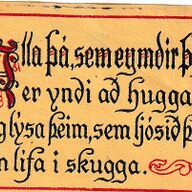 Alla þá, sem eymdir þ
er yndi að hugga
g lýsa þeim, sem ljósið þ
n lifa í skugga.